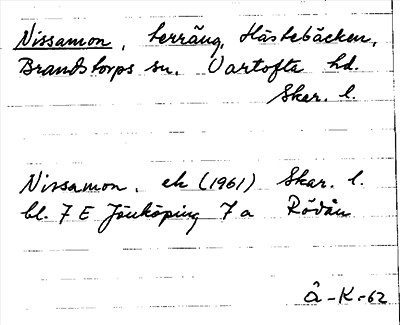 Nissamon, terräng, Hästebäcken,
Brandstorps sn. Vartofta hd.
Skar. l.
Nissamon, ek (1961) Skar. l.
bl. 7 E Jönköping 7 a Rödån
Å-K-62